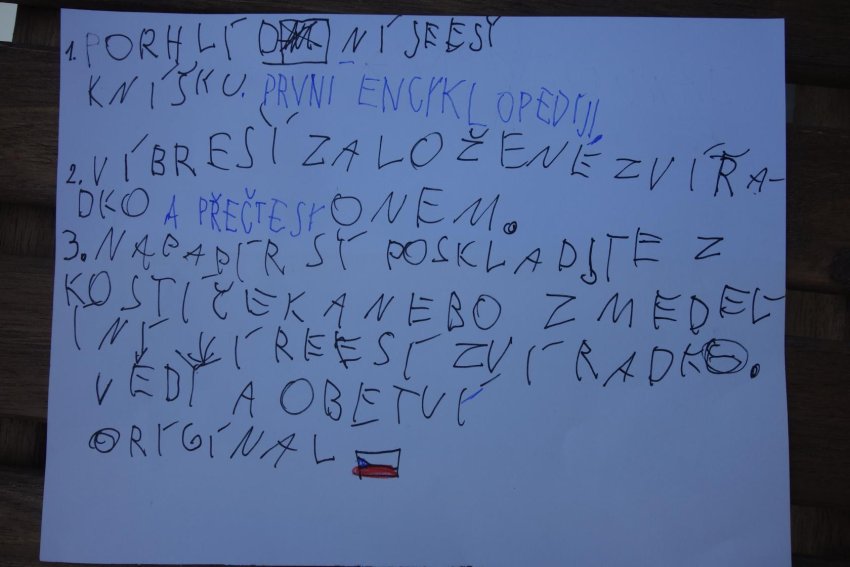 1. PORHLÍD NÍSEESI
KNÍŠKU. PRVNÍ ENCYKLOPEDIJI
2. VÍBREŠÍ ZALOŽENÉ ZVÍŘA-
DKO A PŘEČTESI ONEM.
3. NAPAPÍR SÍ POSKLADJTE Z
KOSTIČEK A NEBO Z MEDEL
ÍNÍ VÍREEST ZVÍRADKO.
VĚDÍ A OBETVÍ
ORIGINAL